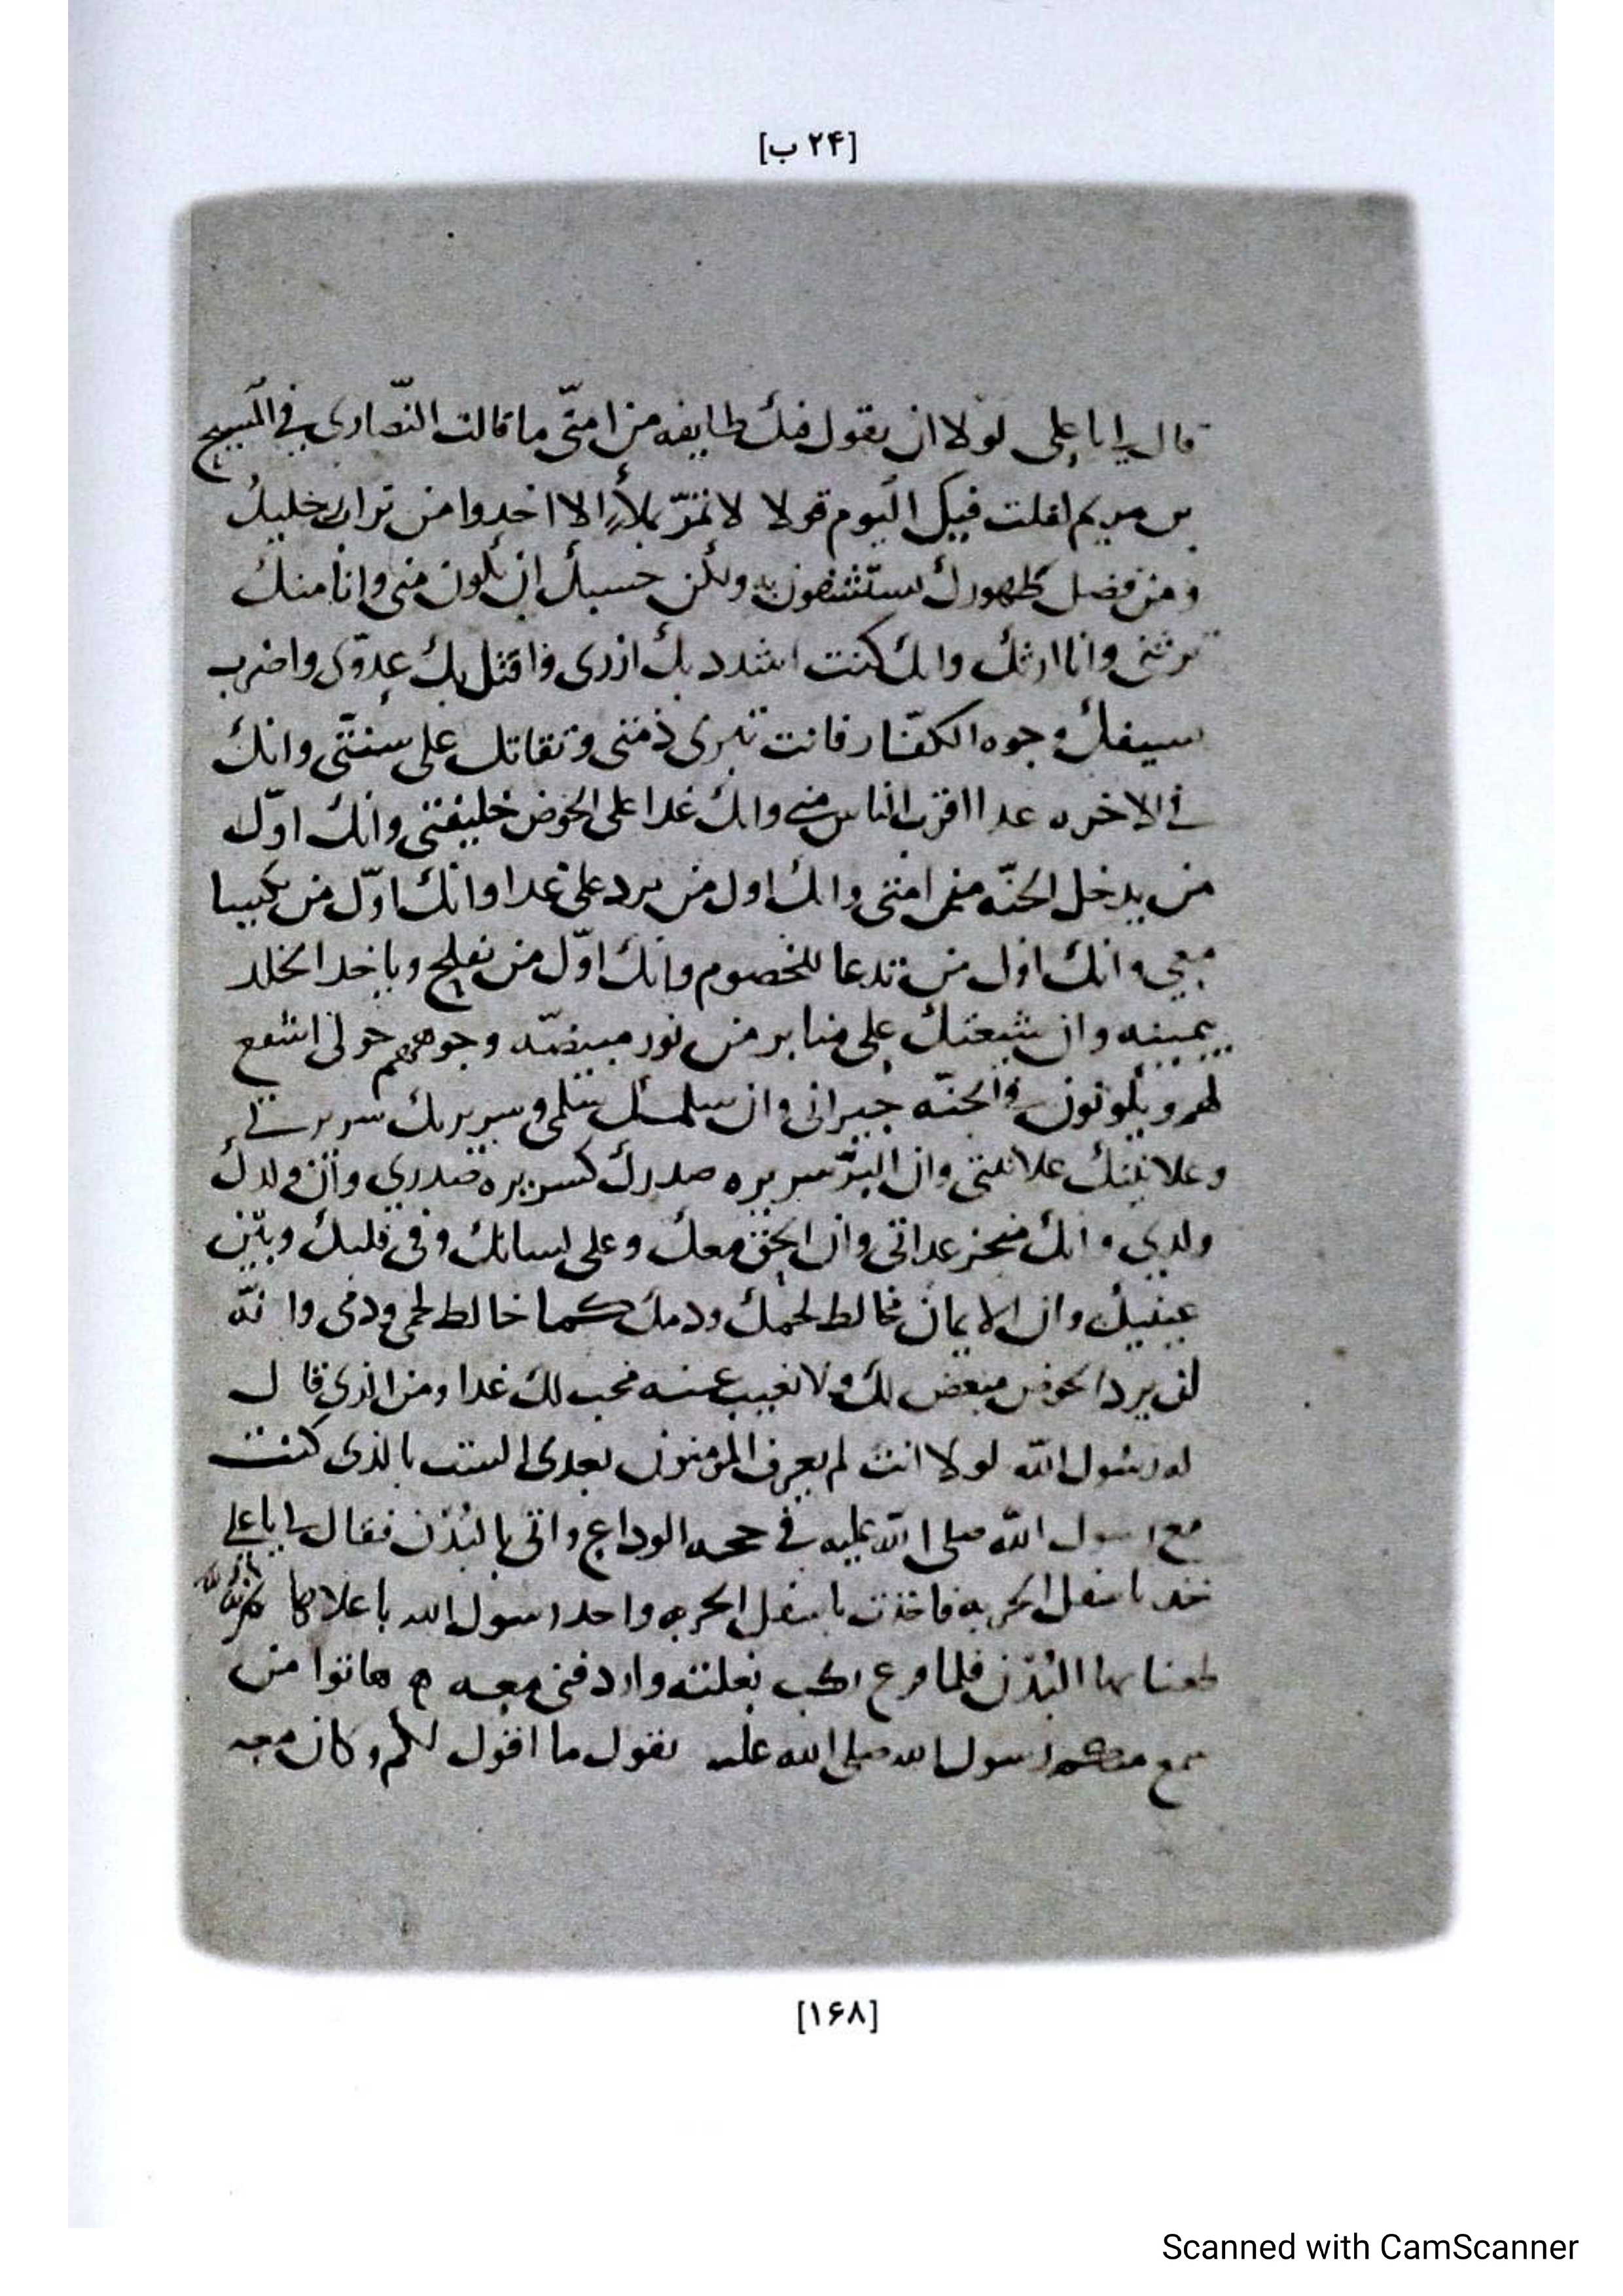 [۲۴ ب]
قال يا با علي لولا ان يقول فيك طايفه من امتي ما قالت النصارى في المسيح
بن مريم لقلت فيك اليوم قولا لا تمر بملأ الا اخدوا من تراب
ومن فضل طهورك يستشفون به ولكن حسبك ان تكون مني وانا منك
ترثني وانا ارثك وانك كنت اشدد بك ازرى واقتل بك عدوى واضرب
بسيفك وجوه الكفار فانت تبرى ذمتي وتقاتل على سنتي وانك
في الاخره غدا اقرب الناس مني وانك غدا على الحوض خليفتي وانك اول
من يدخل الجنه من امتي وانك اول من يرد علي غدا وانك اول من يكسا
معي وانك اول من تدعا للخصوم وانك اول من يفلج وياخد الخلد
بيمينه وان شيعتك على منابر من نور مبيضه وجوههم حولي اشفع
لهم ويكونون في الجنه جيراني وان سلمك سلمي وسريرتك سريرتي
وعلانيتك علانيتي وان السر سريره صدرك كسريره صدري وان ولدك
ولدي وانك منجز عداتي وان الحق معك وعلى لسانك وفي قلبك وبين
عينيك وان الايمان مخالط لحمك ودمك كما خالط لحمي ودمي وانه
لن يرد الحوض مبغض لك ولا يغيب عنه محب لك غدا ومن الذي قال
له رسول الله لولا انت لم يعرف المومنون بعدى الست بالذى كنت
مع رسول الله صلى الله عليه في حجه الوداع واتى بالبدن فقال يا با علي
خد باسفل الحربه فاخذت باسفل الحربه واخد رسول الله باعلاها
طعنا بها البدن فلما فرع ركب بغلته واردفني معه هاتوا من
سمع منكم رسول الله صلى الله عليه يقول ما اقول لكم وكان معه
[۱۶۸]
Scanned with CamScanner